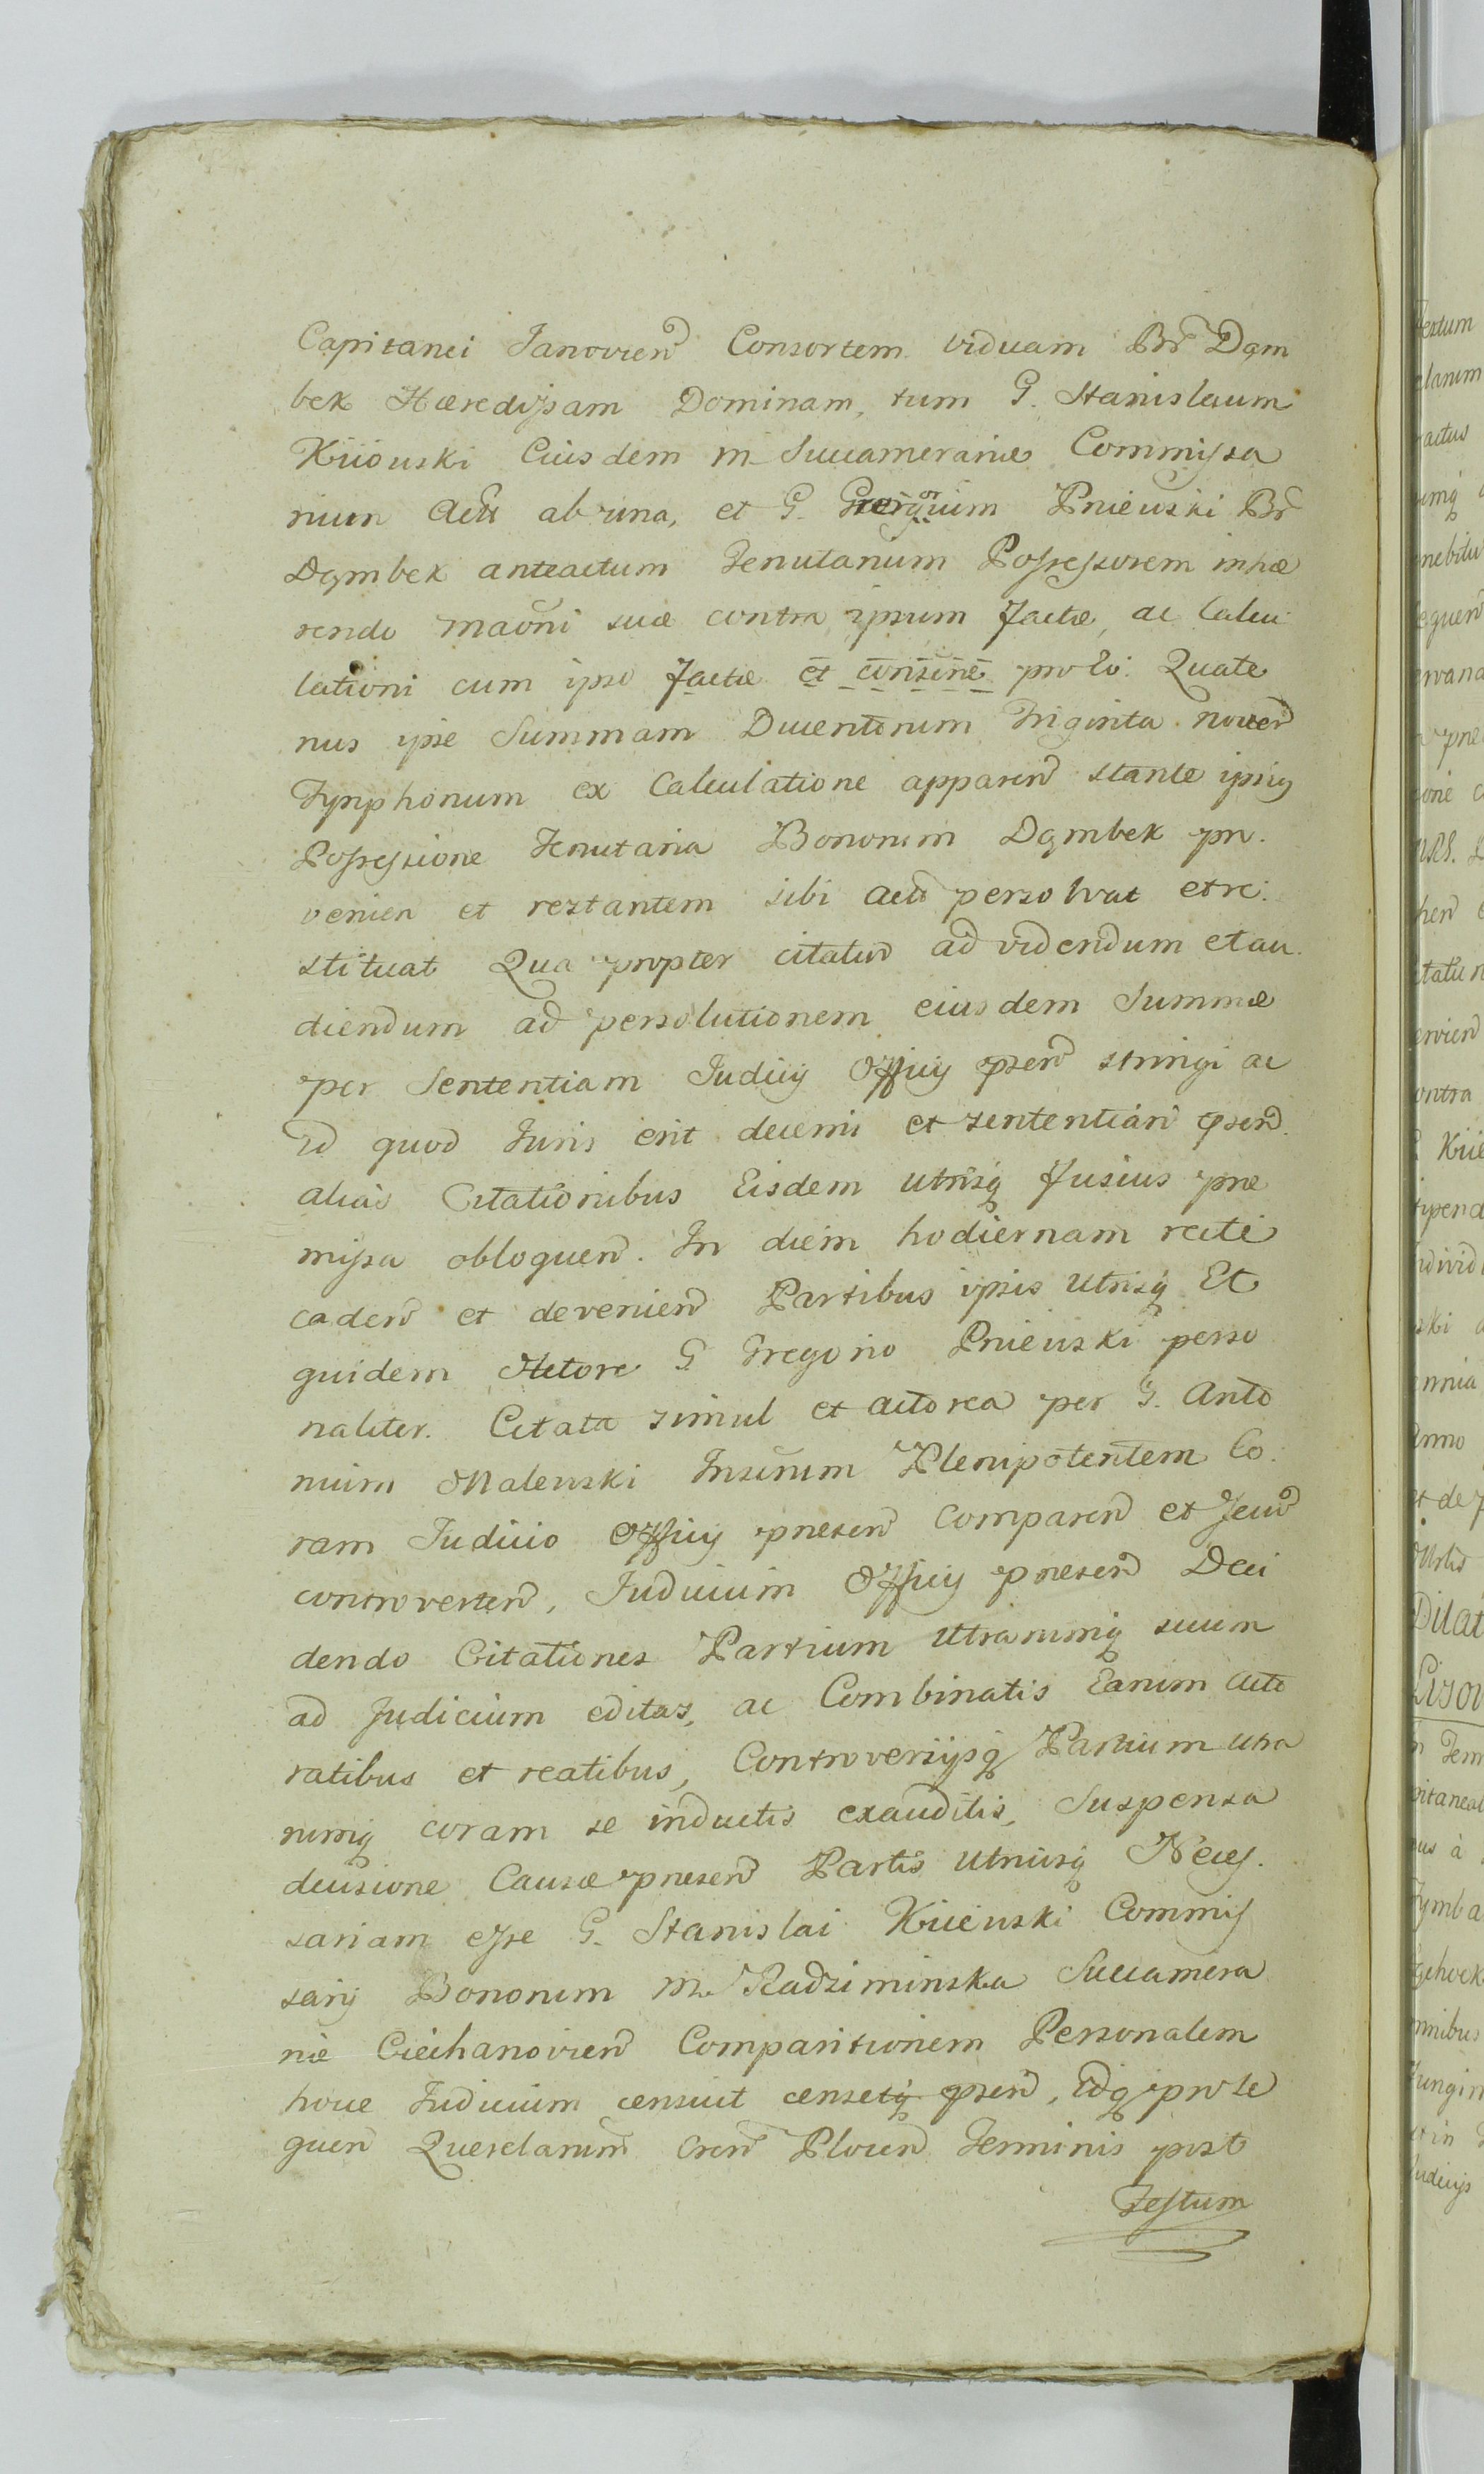 Capitanei Janovien Consortem viduam Br Dąm
bek Hæredissam Dominam, tum G. Stanislaum
Kiiouski Eiusdem M Succamerariæ Commissa
rium Actu ab una, et G. Pniewski Br
Dąmbek anteactum Tenutarium Possessorem inhæ
rendo maoni suæ contra ipsum factæ, ac Calcu
lationi cum ipso factæ et Quate
nus ipse Summam Ducentorum Triginta novem
Tynphonum ex Calculatione apparen stante ipsius
Possessione Tenutaria Bonorum Dąmbek pro.
venien et restantem sibi persolvat et re:
stituat Qua propter citatur ad videndum et au.
diendum ad persolutionem eiusdem Summæ
per Sententiam Judicij Officij psen stringi ac
id quod Juris erit decerni et sententiari psen.
alias Citationibus Eisdem utrisq fusius præ
missa obloquen. In diem hodiernam recte
caden et devenien Partibus ipsis utrisq Et
quidem Actore G Gregorio Pniewski perso
naliter. Citata simul et actorea per G. Anto
nium Malewski Insertum Plenipotentem Co:
ram Judicio Officij præsen Comparen et
controverten, Judicium Officij præsen Deci
dendo Citationes Partium utrarumq suum
ad Judicium editas, ac Combinatis Earum acto
ratibus et reatibus, Controversijsq Partium utra
rumq coram se inductis exauditis, Suspensa
decisione Causæ præsen Partis utriusq Neces.
sariam esse G. Stanislai Kiieuski Commis
sarij Bonorum M. Radziminska Succamera
riæ Ciechanovien Comparitionem Personalem
hocce Judicium censuit censetq psen, Idq pro se
quen Querelarum Cren Plocen Terminis post
Festum